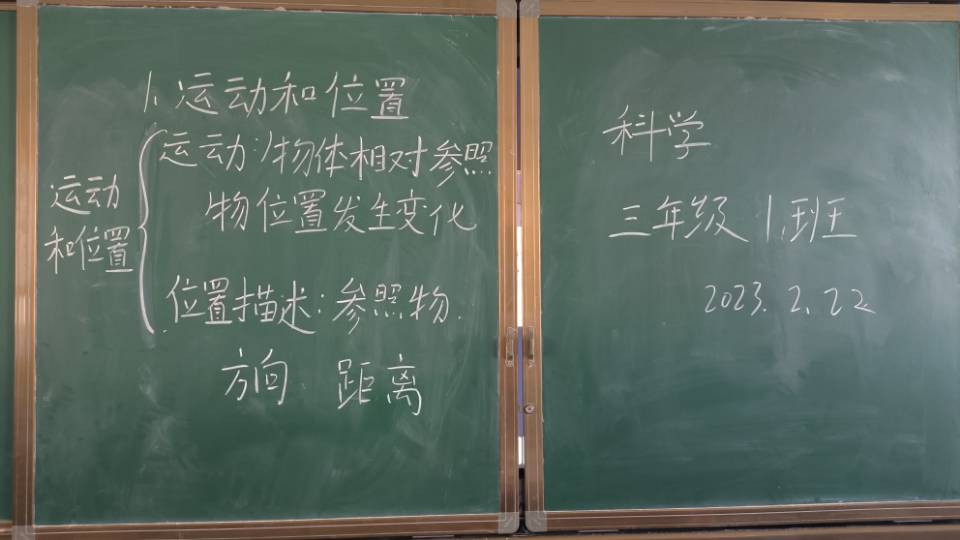 1. 运动和位置
运动
和位置
运动:物体相对参照
物位置发生变化
位置描述:参照物.
方向 距离
科学
三年级 1.班
2023.2.22